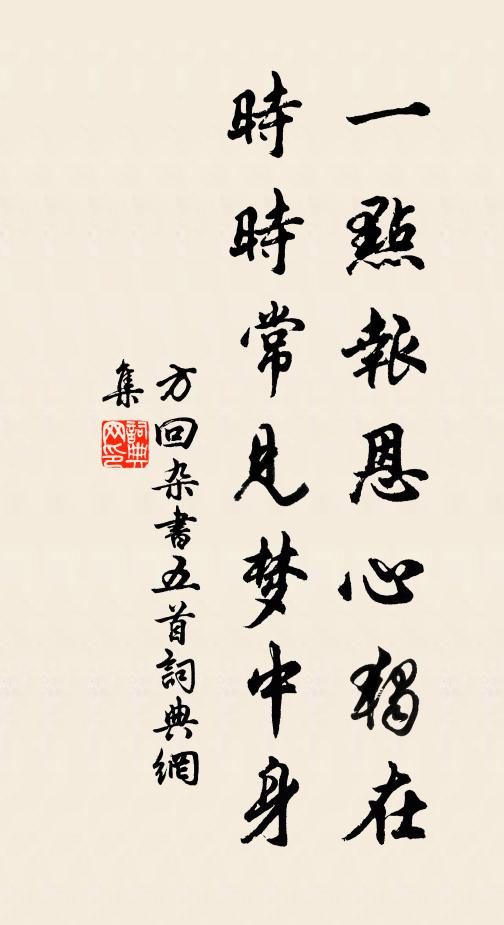 一點報恩心獨在
時時常見梦中身
方回杂書五首詞典網
集
詞典网印